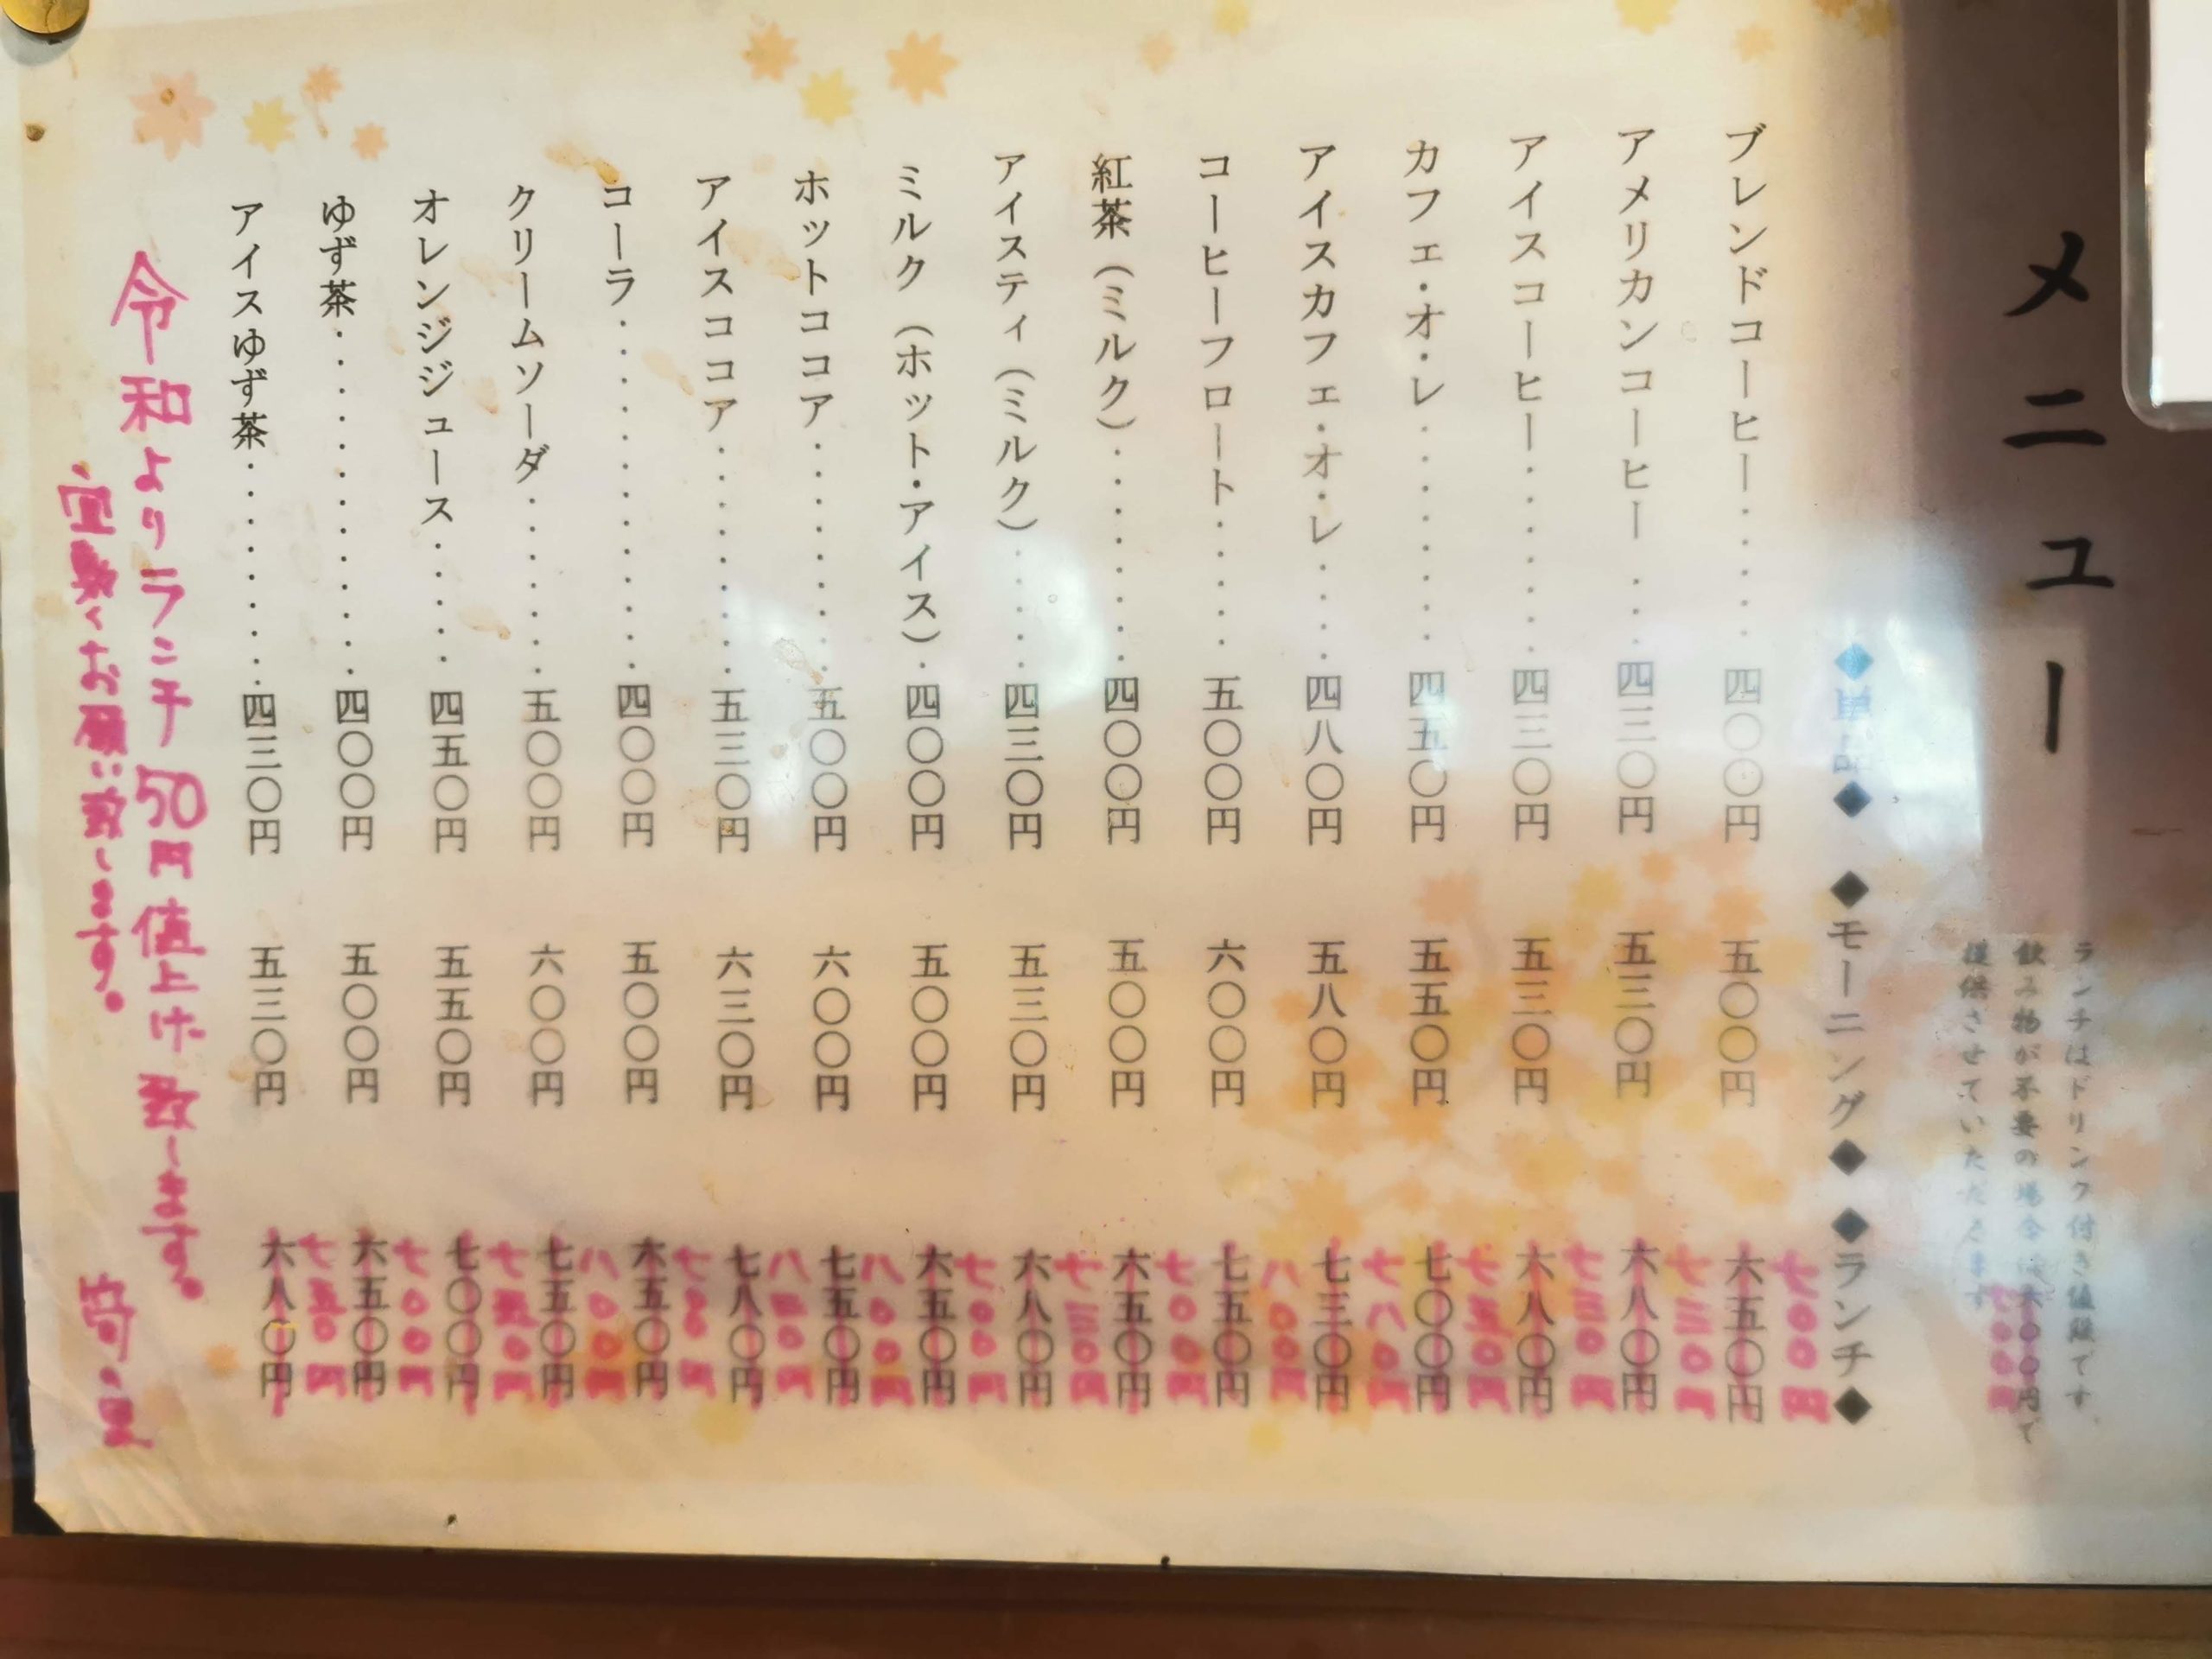 メニュー
ランチはドリンク付き値段です
飲み物が不要の場合は六〇〇円で
七〇〇円
提供させていただきます
◆単品◆ ◆モーニング◆ ◆ランチ◆
七〇〇円
ブレンドコーヒー・・・・・四〇〇円 五〇〇円 六五〇円
七三〇円
アメリカンコーヒー ・・・四三〇円 五三〇円 六八〇円
七三〇円
アイスコーヒー・・・・・・・四三〇円 五三〇円 六八〇円
七五〇円
カフェ・オ・レ・・・・・・・・四五〇円 五五〇円 七〇〇円
七八〇円
アイスカフェ・オ・レ・・・・四八〇円 五八〇円 七三〇円
八〇〇円
コーヒーフロート・・・・・五〇〇円 六〇〇円 七五〇円
七〇〇円
紅茶（ミルク）・・・・・・・・四〇〇円 五〇〇円 六五〇円
七三〇円
アイスティ（ミルク）・・・・・四三〇円 五三〇円 六八〇円
七〇〇円
ミルク（ホット・アイス）・四〇〇円 五〇〇円 六五〇円
八〇〇円
ホットココア・・・・・・・・・五〇〇円 六〇〇円 七五〇円
八三〇円
アイスココア・・・・・・・・・五三〇円 六三〇円 七八〇円
七〇〇円
コーラ・・・・・・・・・・・・・四〇〇円 五〇〇円 六五〇円
八〇〇円
クリームソーダ・・・・・・・五〇〇円 六〇〇円 七五〇円
七五〇円
オレンジジュース・・・・・四五〇円 五五〇円 七〇〇円
七〇〇円
ゆず茶・・・・・・・・・・・・・四〇〇円 五〇〇円 六五〇円
七三〇円
アイスゆず茶・・・・・・・・・四三〇円 五三〇円 六八〇円
令和よりランチ50円値上げ致します。
宜敷くお願い致します。